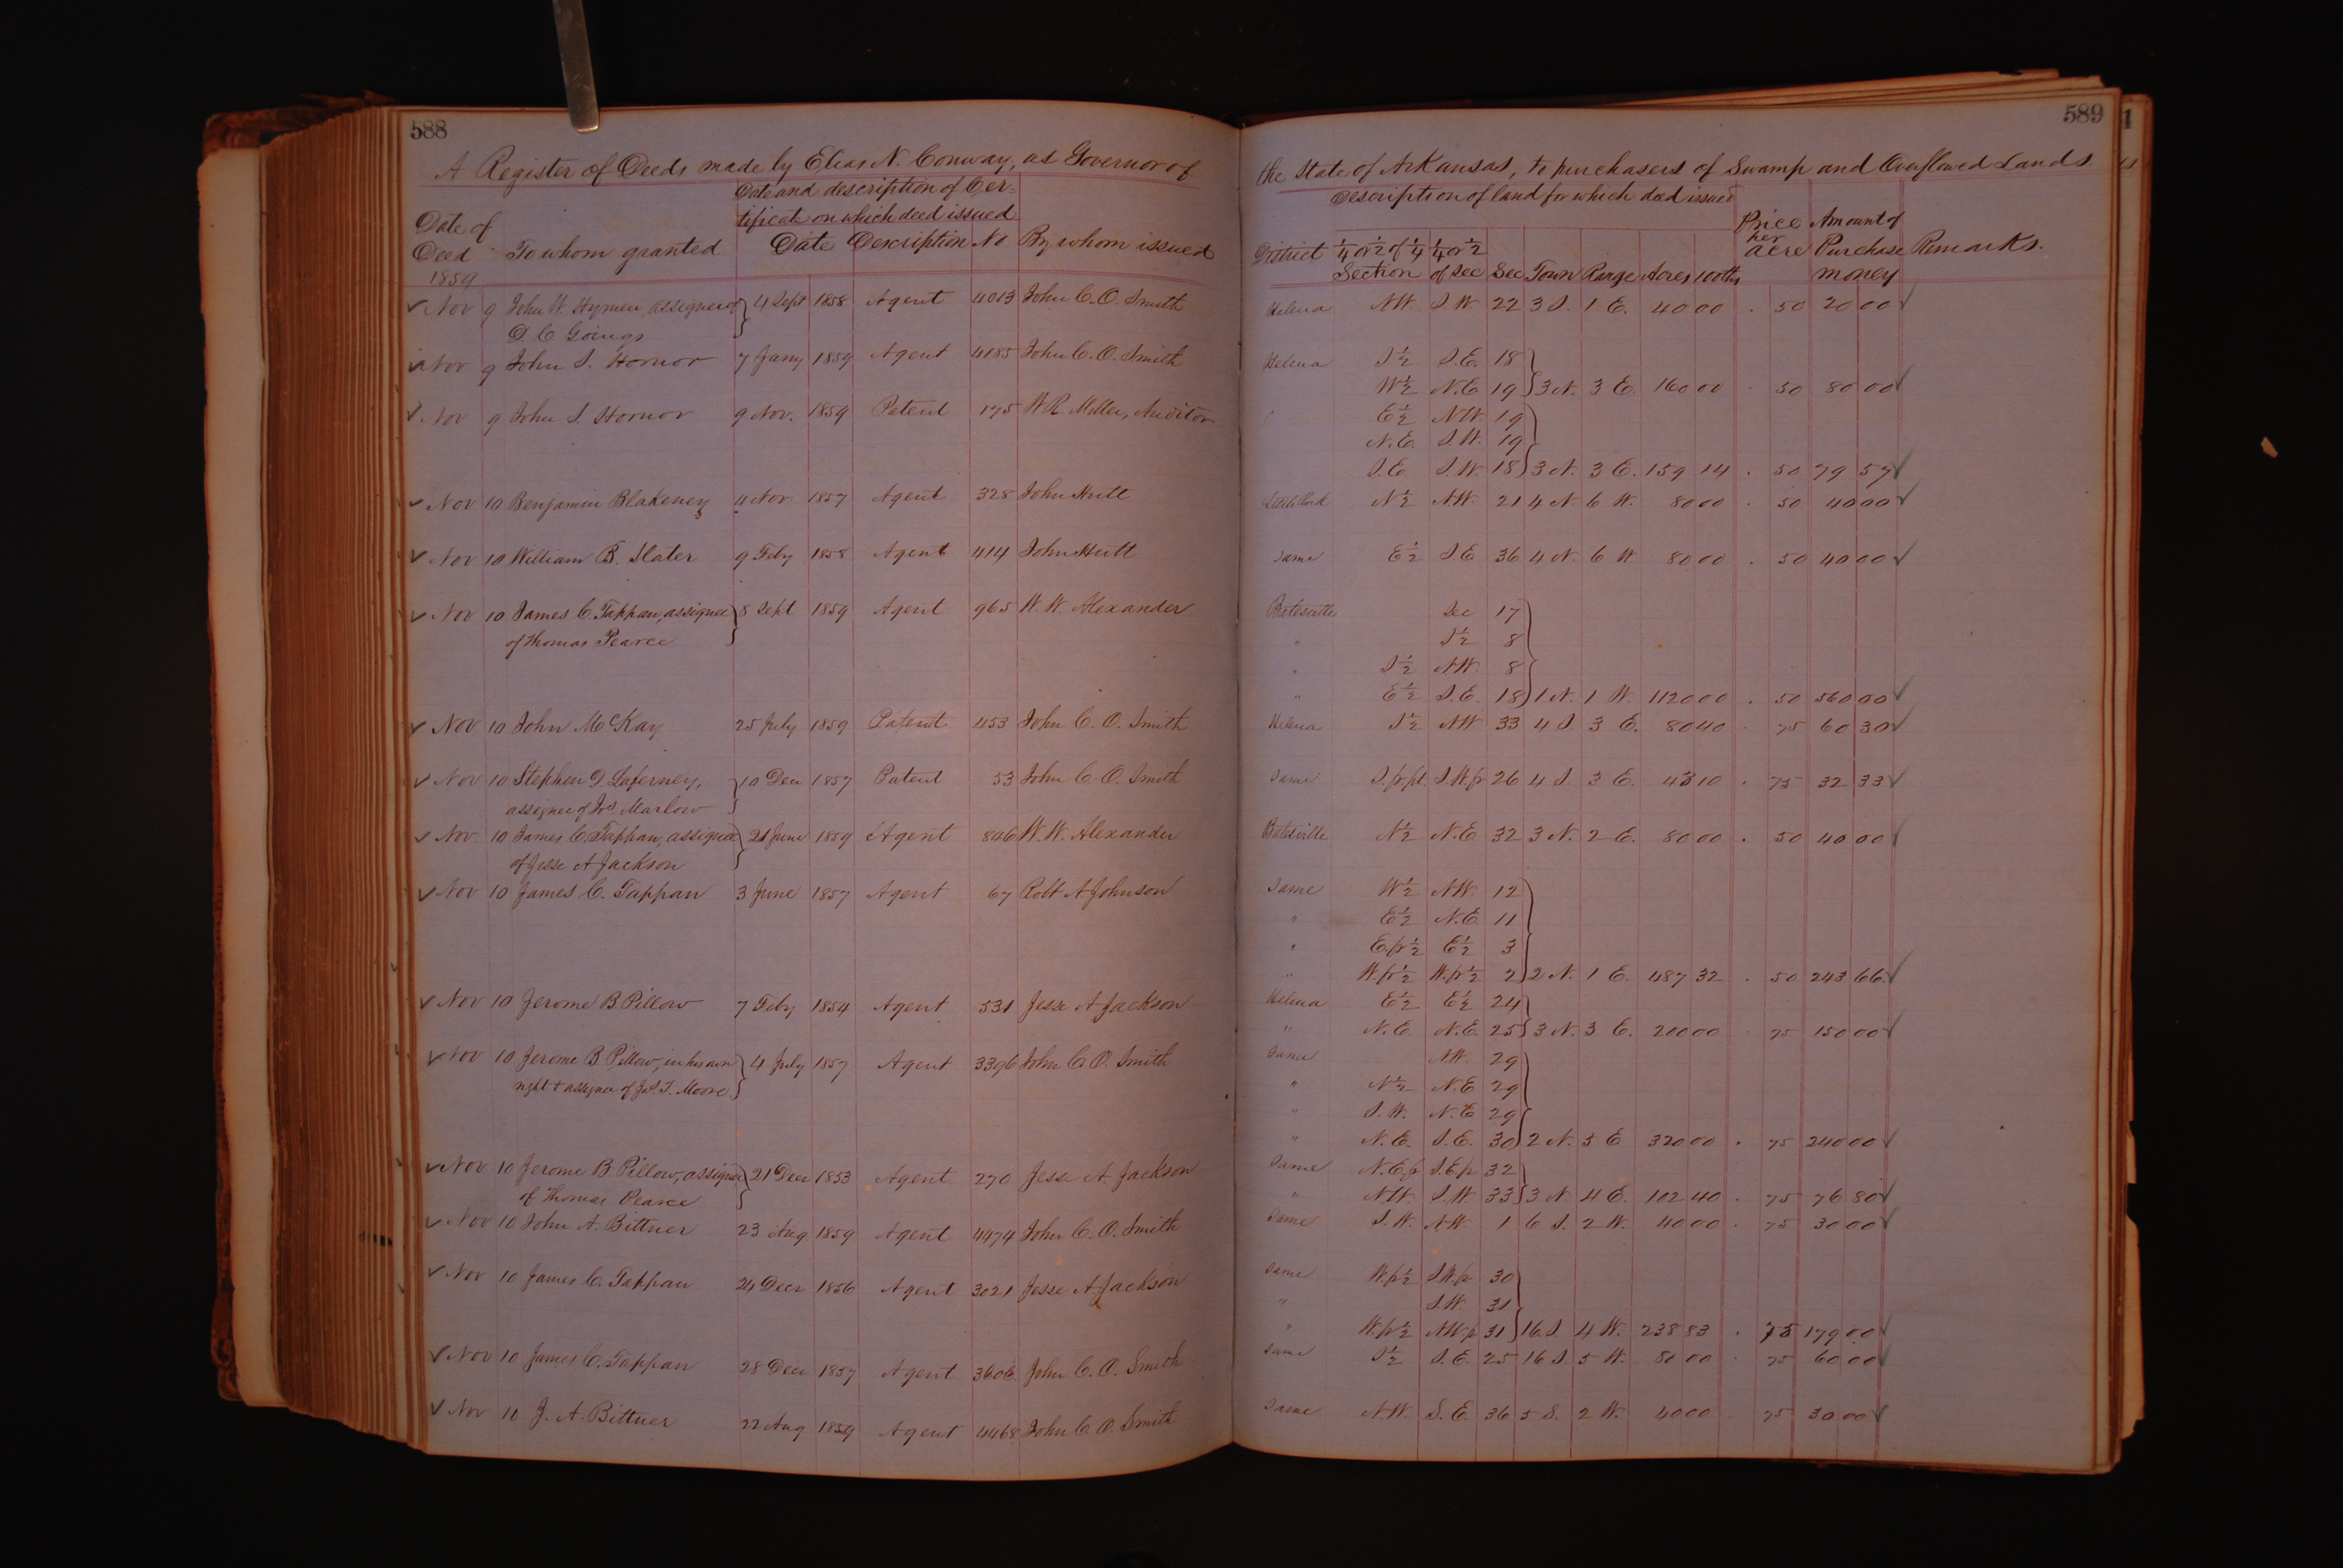 588
A Register of Deeds made by Elias N. Conway, as Governor of
Date and description of Cer-
tificate on which deed issued
Date of
Deed To whom granted Date Description No By whom issued
1859
✓ Nov 9 John W. Hymen, assignee of } 4 Sept 1858 Agent 4013 John C. O. Smith
D. C. Goings
✓ Nov 9 John S. Hornor 7 Jany 1859 Agent 4185 John C. O. Smith
✓ Nov 9 John S. Hornor 9 Nov. 1859 Patent 175 W. R. Miller, Auditor
✓ Nov 10 Benjamin Blakeney 4 Nov. 1857 Agent 328 John Hutt
✓ Nov 10 William B. Slater 9 Feby 1858 Agent 414 John Hutt
✓ Nov 10 James C. Tappan, assignee } 8 Sept 1859 Agent 965 W. W. Alexander
of Thomas Pearce
✓ Nov 10 John McKay 25 July 1859 Patent 453 John C. O. Smith
✓ Nov 10 Stephen D. Laferney, } 10 Dec 1857 Patent 53 John C. O. Smith
assignee of Jos Marlow
✓ Nov. 10 James C. Tappan, assignee } 21 June 1859 Agent 846 W. W. Alexander
of Jesse A Jackson
✓ Nov 10 James C. Tappan 3 June 1857 Agent 67 Robt A. Johnson
✓ Nov 10 Jerome B. Pillow 7 Feby 1854 Agent 531 Jesse A Jackson
✓ Nov 10 Jerome B. Pillow, in his own } 4 July 1857 Agent 3396 John C. O. Smith
right & assignee of Jas. T. Moore
✓ Nov 10 Jerome B. Pillow, assignee } 21 Dec 1853 Agent 270 Jesse A. Jackson
of Thomas Pearce
✓ Nov 10 John A. Bittner 23 Aug 1859 Agent 4474 John C. O. Smith
✓ Nov 10 James C. Tappan 24 Decr 1856 Agent 3021 Jesse A Jackson
✓ Nov 10 James C. Tappan 28 Decr 1857 Agent 3606 John C. O. Smith
✓ Nov 10 J. A. Bittner 22 Aug 1859 Agent 4468 John C. O. Smith
589
the State of Arkansas, to purchasers of Swamp and Overflowed Lands
Description of land for which deed issued
District 1/4 or 1/2 of 1/4 1/4 or 1/2 Price per Amount of
Section of Sec Sec Town Range Acres 100ths acre Purchase money Remarks.
Helena N.W. S.W. 22 3 S. 1 E. 40 00 . 50 20 00 ✓
Helena S 1/2 S.E. 18 }
W 1/2 N.E. 19 } 3 N. 3 E. 160 00 . 50 80 00 ✓
E 1/2 N.W. 19 }
N.E. S.W. 19
S.E. S.W. 18 } 3 N. 3 E. 159 14 . 50 79 57 ✓
Little Rock N 1/2 N.W. 21 4 N. 6 W. 80 00 . 50 40 00 ✓
Same E 1/2 S.E. 36 4 N. 6 W. 80 00 . 50 40 00 ✓
Batesville Sec 17 }
" S 1/2 8
" S 1/2 N.W. 8
" E 1/2 S.E. 18 } 1 N. 1 W. 1120 00 . 50 560 00 ✓
Helena S 1/2 N.W. 33 4 S. 3 E. 80 40 . 75 60 30 ✓
Same S. fr pt S.W. fr 26 4 S. 3 E. 43 10 . 75 32 33 ✓
Batesville N 1/2 N.E. 32 3 N. 2 E. 80 00 . 50 40 00 ✓
Same W 1/2 N.W. 12 }
" E 1/2 N.E. 11
" E. fr 1/2 E 1/2 3
" W. fr 1/2 W. fr 1/2 2 } 2 N. 1 E. 487 32 . 50 243 66 ✓
Helena E 1/2 E 1/2 24 }
" N.E. N.E. 25 } 3 N. 3 E. 200 00 . 75 150 00 ✓
Same N.W. 29 }
" N 1/2 N.E. 29
" S.W. N.E. 29
" N.E. S.E. 30 } 2 N. 5 E 320 00 . 75 240 00 ✓
Same N.E. fr S.E. fr 32 }
" N.W. S.W. 33 } 3 N. 4 E. 102 40 . 75 76 80 ✓
Same S.W. N.W. 1 6 S. 2 W. 40 00 . 75 30 00 ✓
Same W. fr 1/2 S.W. fr 30 }
" S.W. 31
" W. fr 1/2 N.W. fr 31 } 16 S. 4 W. 238 83 . 75 179 00 ✓
Same S 1/2 S.E. 25 16 S. 5 W. 80 00 . 75 60 00 ✓
Same N.W. S.E. 36 5 S. 2 W. 40 00 . 75 30 00 ✓